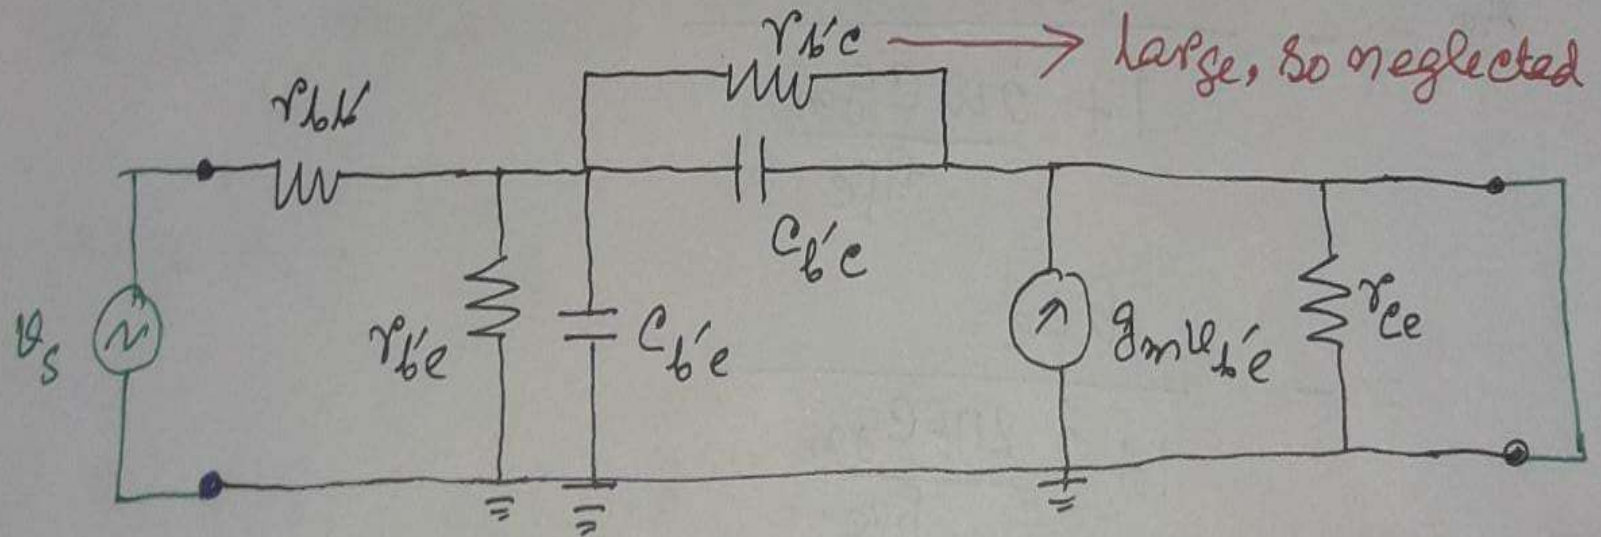 r_b'c → large, so neglected
r_bb'
C_b'c
v_s
r_b'e
C_b'e
g_m v_b'e
r_ce